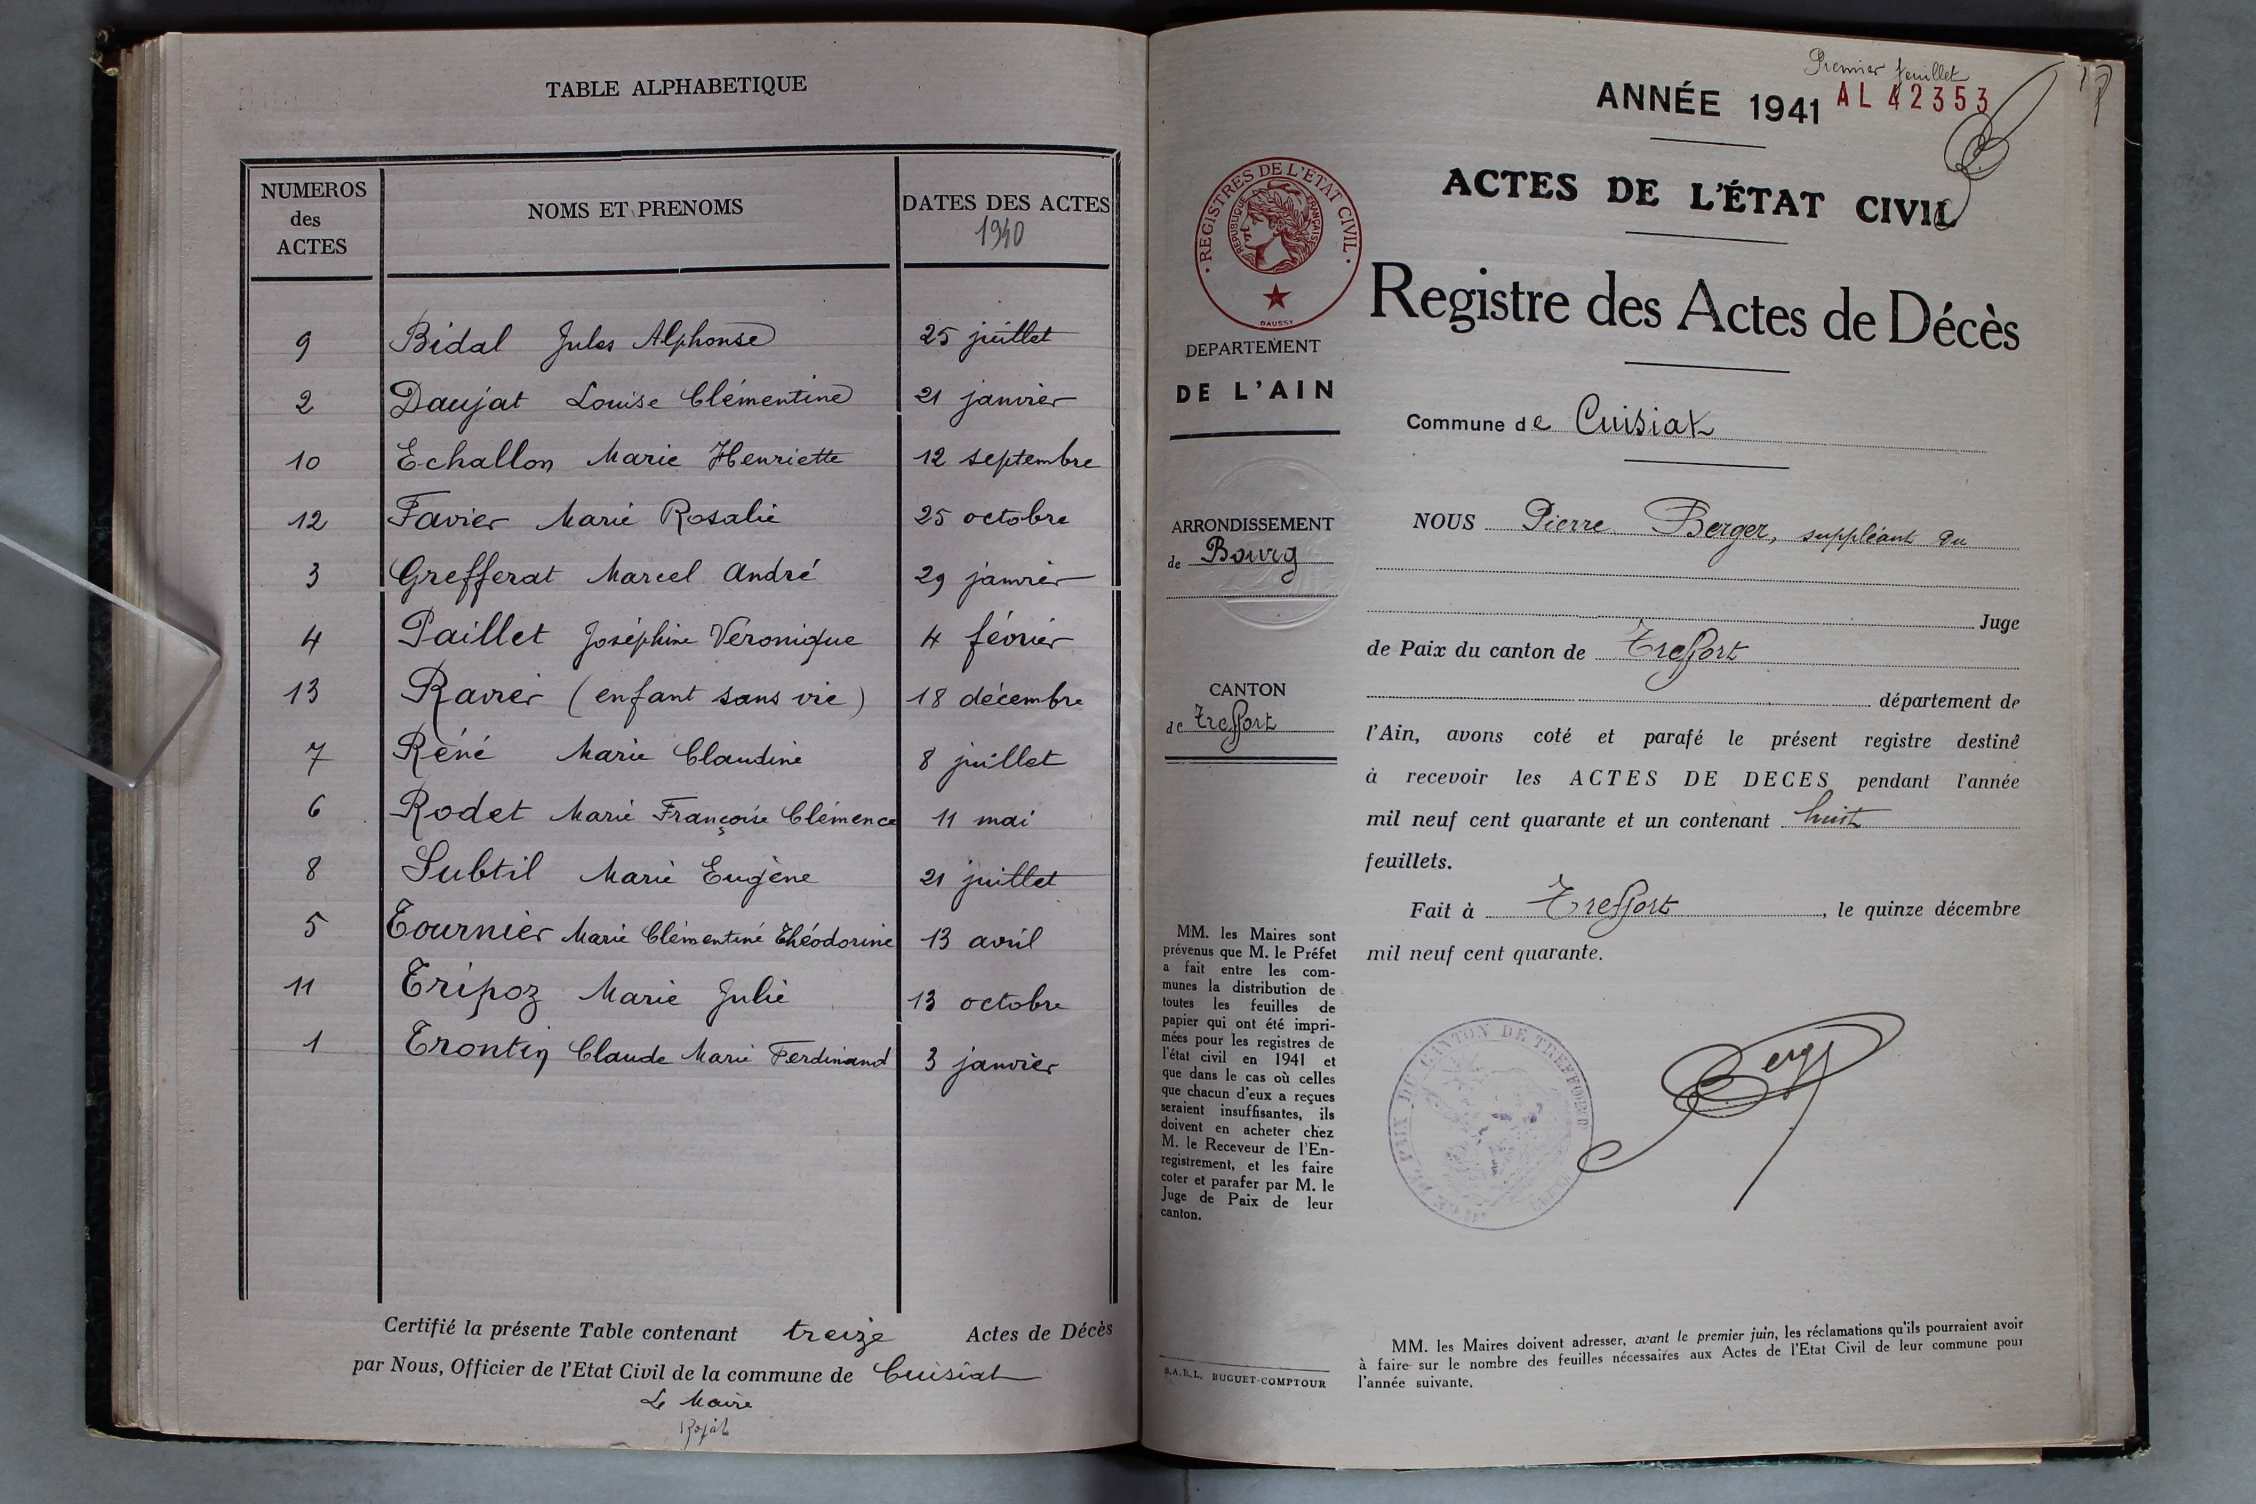 TABLE ALPHABETIQUE
NUMEROS
des
ACTES
NOMS ET PRENOMS
DATES DES ACTES
1940
9 Bidal Jules Alphonse 25 juillet
2 Daujat Louise Clémentine 21 janvier
10 Echallon Marie Henriette 12 septembre
12 Favier Marie Rosalie 25 octobre
3 Grefferat Marcel André 29 janvier
4 Paillet Joséphine Véronique 4 février
13 Ravier (enfant sans vie) 18 décembre
7 Réné Marie Claudine 8 juillet
6 Rodet Marie Françoise Clémence 11 mai
8 Subtil Marie Eugène 21 juillet
5 Tournier Marie Clémentine Théodorine 13 avril
11 Tripoz Marie Julie 13 octobre
1 Trontin Claude Marie Ferdinand 3 janvier
Certifié la présente Table contenant treize Actes de Décès
par Nous, Officier de l'Etat Civil de la commune de Cuisiat
Le Maire
Premier feuillet
ANNÉE 1941 AL 42353
ACTES DE L'ÉTAT CIVIL
REGISTRES DE L'ETAT CIVIL
REPUBLIQUE FRANÇAISE
DAUSSY
Registre des Actes de Décès
DEPARTEMENT
DE L'AIN
Commune de Cuisiat
ARRONDISSEMENT
de Bourg
NOUS Pierre Berger, suppléant du
Juge
de Paix du canton de Treffort
CANTON
de Treffort
département de
l'Ain, avons coté et parafé le présent registre destiné
à recevoir les ACTES DE DECES pendant l'année
mil neuf cent quarante et un contenant huit
feuillets.
Fait à Treffort, le quinze décembre
mil neuf cent quarante.
MM. les Maires sont
prévenus que M. le Préfet
a fait entre les com-
munes la distribution de
toutes les feuilles de
papier qui ont été impri-
mées pour les registres de
l'état civil en 1941 et
que dans le cas où celles
que chacun d'eux a reçues
seraient insuffisantes, ils
doivent en acheter chez
M. le Receveur de l'En-
registrement, et les faire
coter et parafer par M. le
Juge de Paix de leur
canton.
DE PAIX DU CANTON DE TREFFORT
Berger
MM. les Maires doivent adresser, avant le premier juin, les réclamations qu'ils pourraient avoir
à faire sur le nombre des feuilles nécessaires aux Actes de l'Etat Civil de leur commune pour
l'année suivante.
S.A.R.L. BUGUET-COMPTOUR